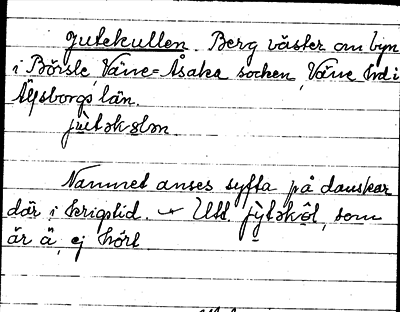 Jutekullen. Berg väster om byn
i Börsle, Väne-Åsaka socken, Väne hd i
Älvsborgs län.
jùtəkɷlən
Namnet anses syfta på danskar
där i krigstid. Utt. jỳtəkôl, som
är ä, ej hört